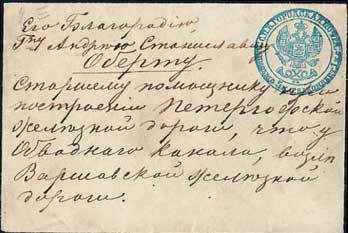 Его Благородію
Гну Андрею Станиславовичу
Оберту.
Старшему помощнику при
построеніи Петергофской
желѣзной дороги, что у
Обводнаго канала, возлѣ
Варшавской желѣзной
дороги.